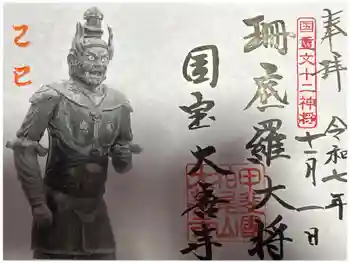 奉拝
令和七年
十一月一日
国重文十二神将
珊底羅大将
国宝大善寺
乙巳